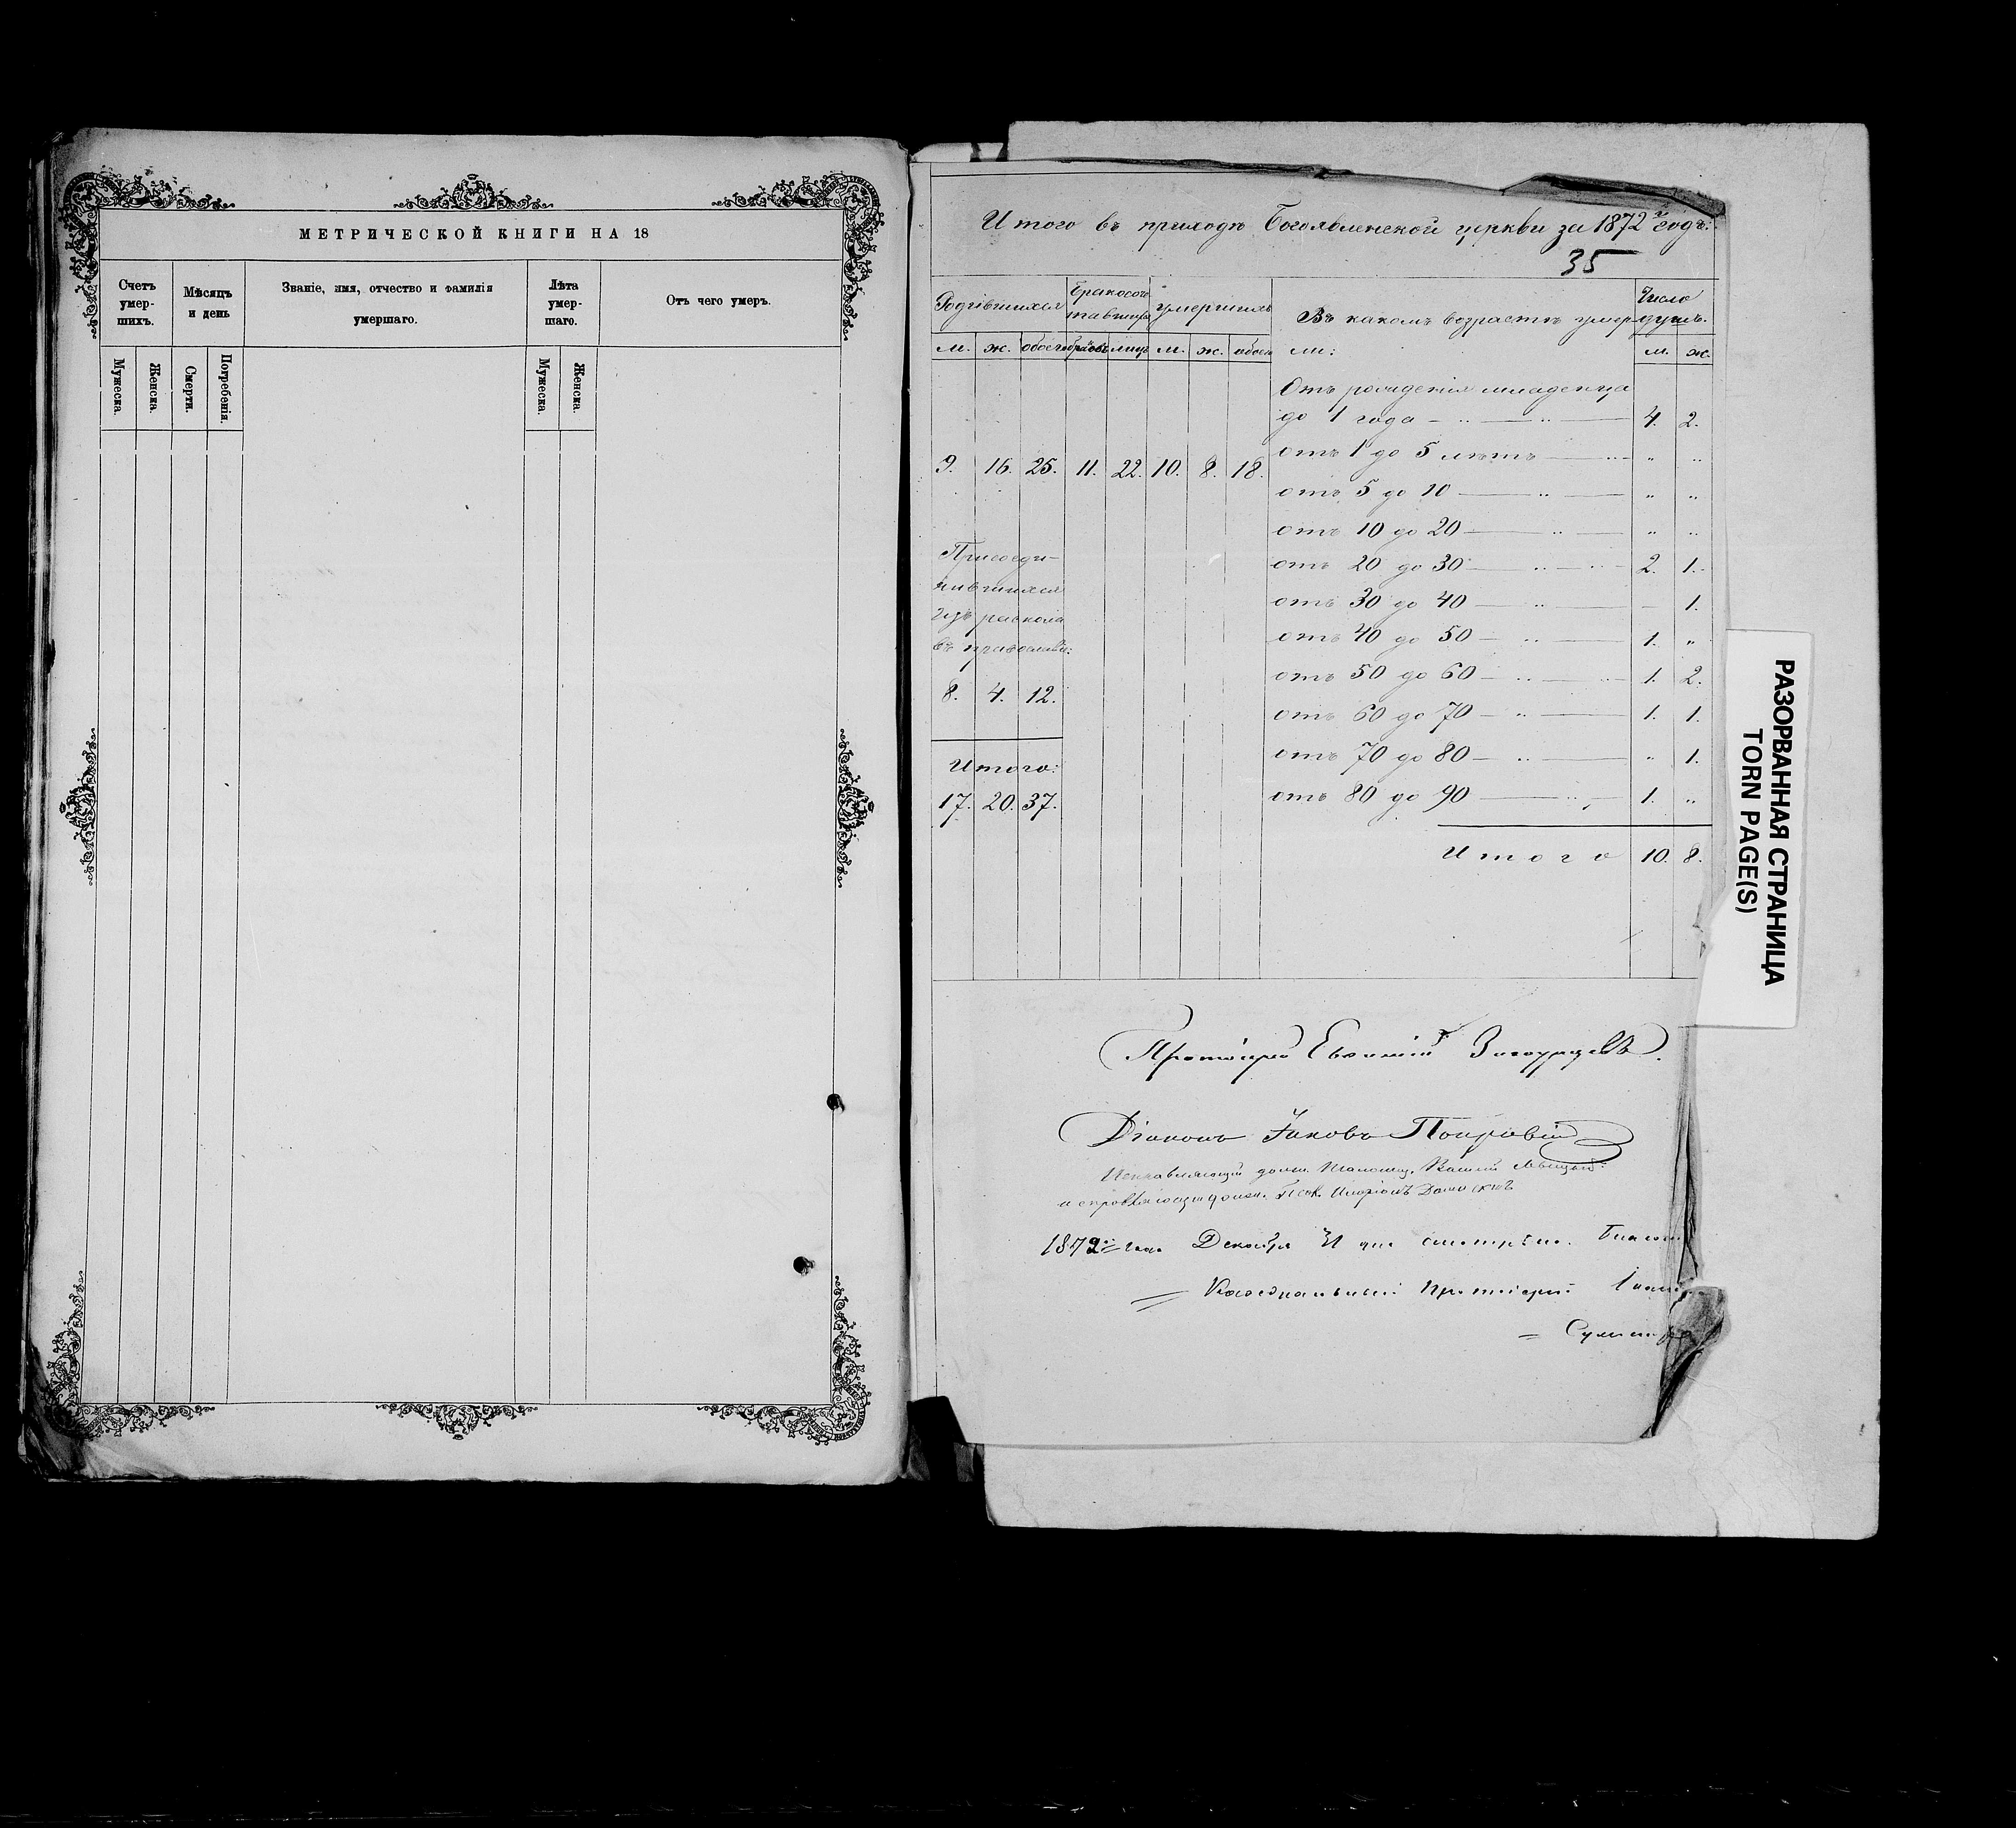 МЕТРИЧЕСКОЙ КНИГИ НА 18
Счетъ умер-шихъ. Мѣсяцъ и день Званіе, имя, отчество и фамилія умершаго. Лѣта умер-шаго. Отъ чего умеръ.
Мужеска. Женска. Смерти. Погребенія. Мужеска. Женска.
Итого въ приходѣ Богоявленской церкви за 1872й годъ:
35
Родившихся Бракосоч-тавшихся Умершихъ Въ какомъ возрастѣ умер- Число душъ.
м. ж. обоего браковъ лицъ м. ж. обоего ли: м. ж.
Отъ рожденія младенца
до 1 года — „ — „ — 4. 2.
9. 16. 25. 11. 22. 10. 8. 18.
отъ 1 до 5 лѣтъ — „ „
отъ 5 до 10 — „ — „ „
отъ 10 до 20 — „ — „ „
отъ 20 до 30 — „ — 2. 1.
отъ 30 до 40 — „ — – 1.
отъ 40 до 50 — „ — 1. „
отъ 50 до 60 — „ — 1. 2.
отъ 60 до 70 — „ — 1. 1.
отъ 70 до 80 — „ — „ 1.
отъ 80 до 90 — „ — 1. „
Итого 10. 8.
Присоеди-
нившихся
изъ раскола
въ православіе:
8. 4. 12.
Итого:
17. 20. 37.
Протоіерей Евѳимій
Діаконъ Іаковъ
Исправляющій долж. Василій
исправляющій должн.
1872го года Декабря 31 дня смотрѣлъ.
Каѳедральный Протоіерей
РАЗОРВАННАЯ СТРАНИЦА
TORN PAGE(S)